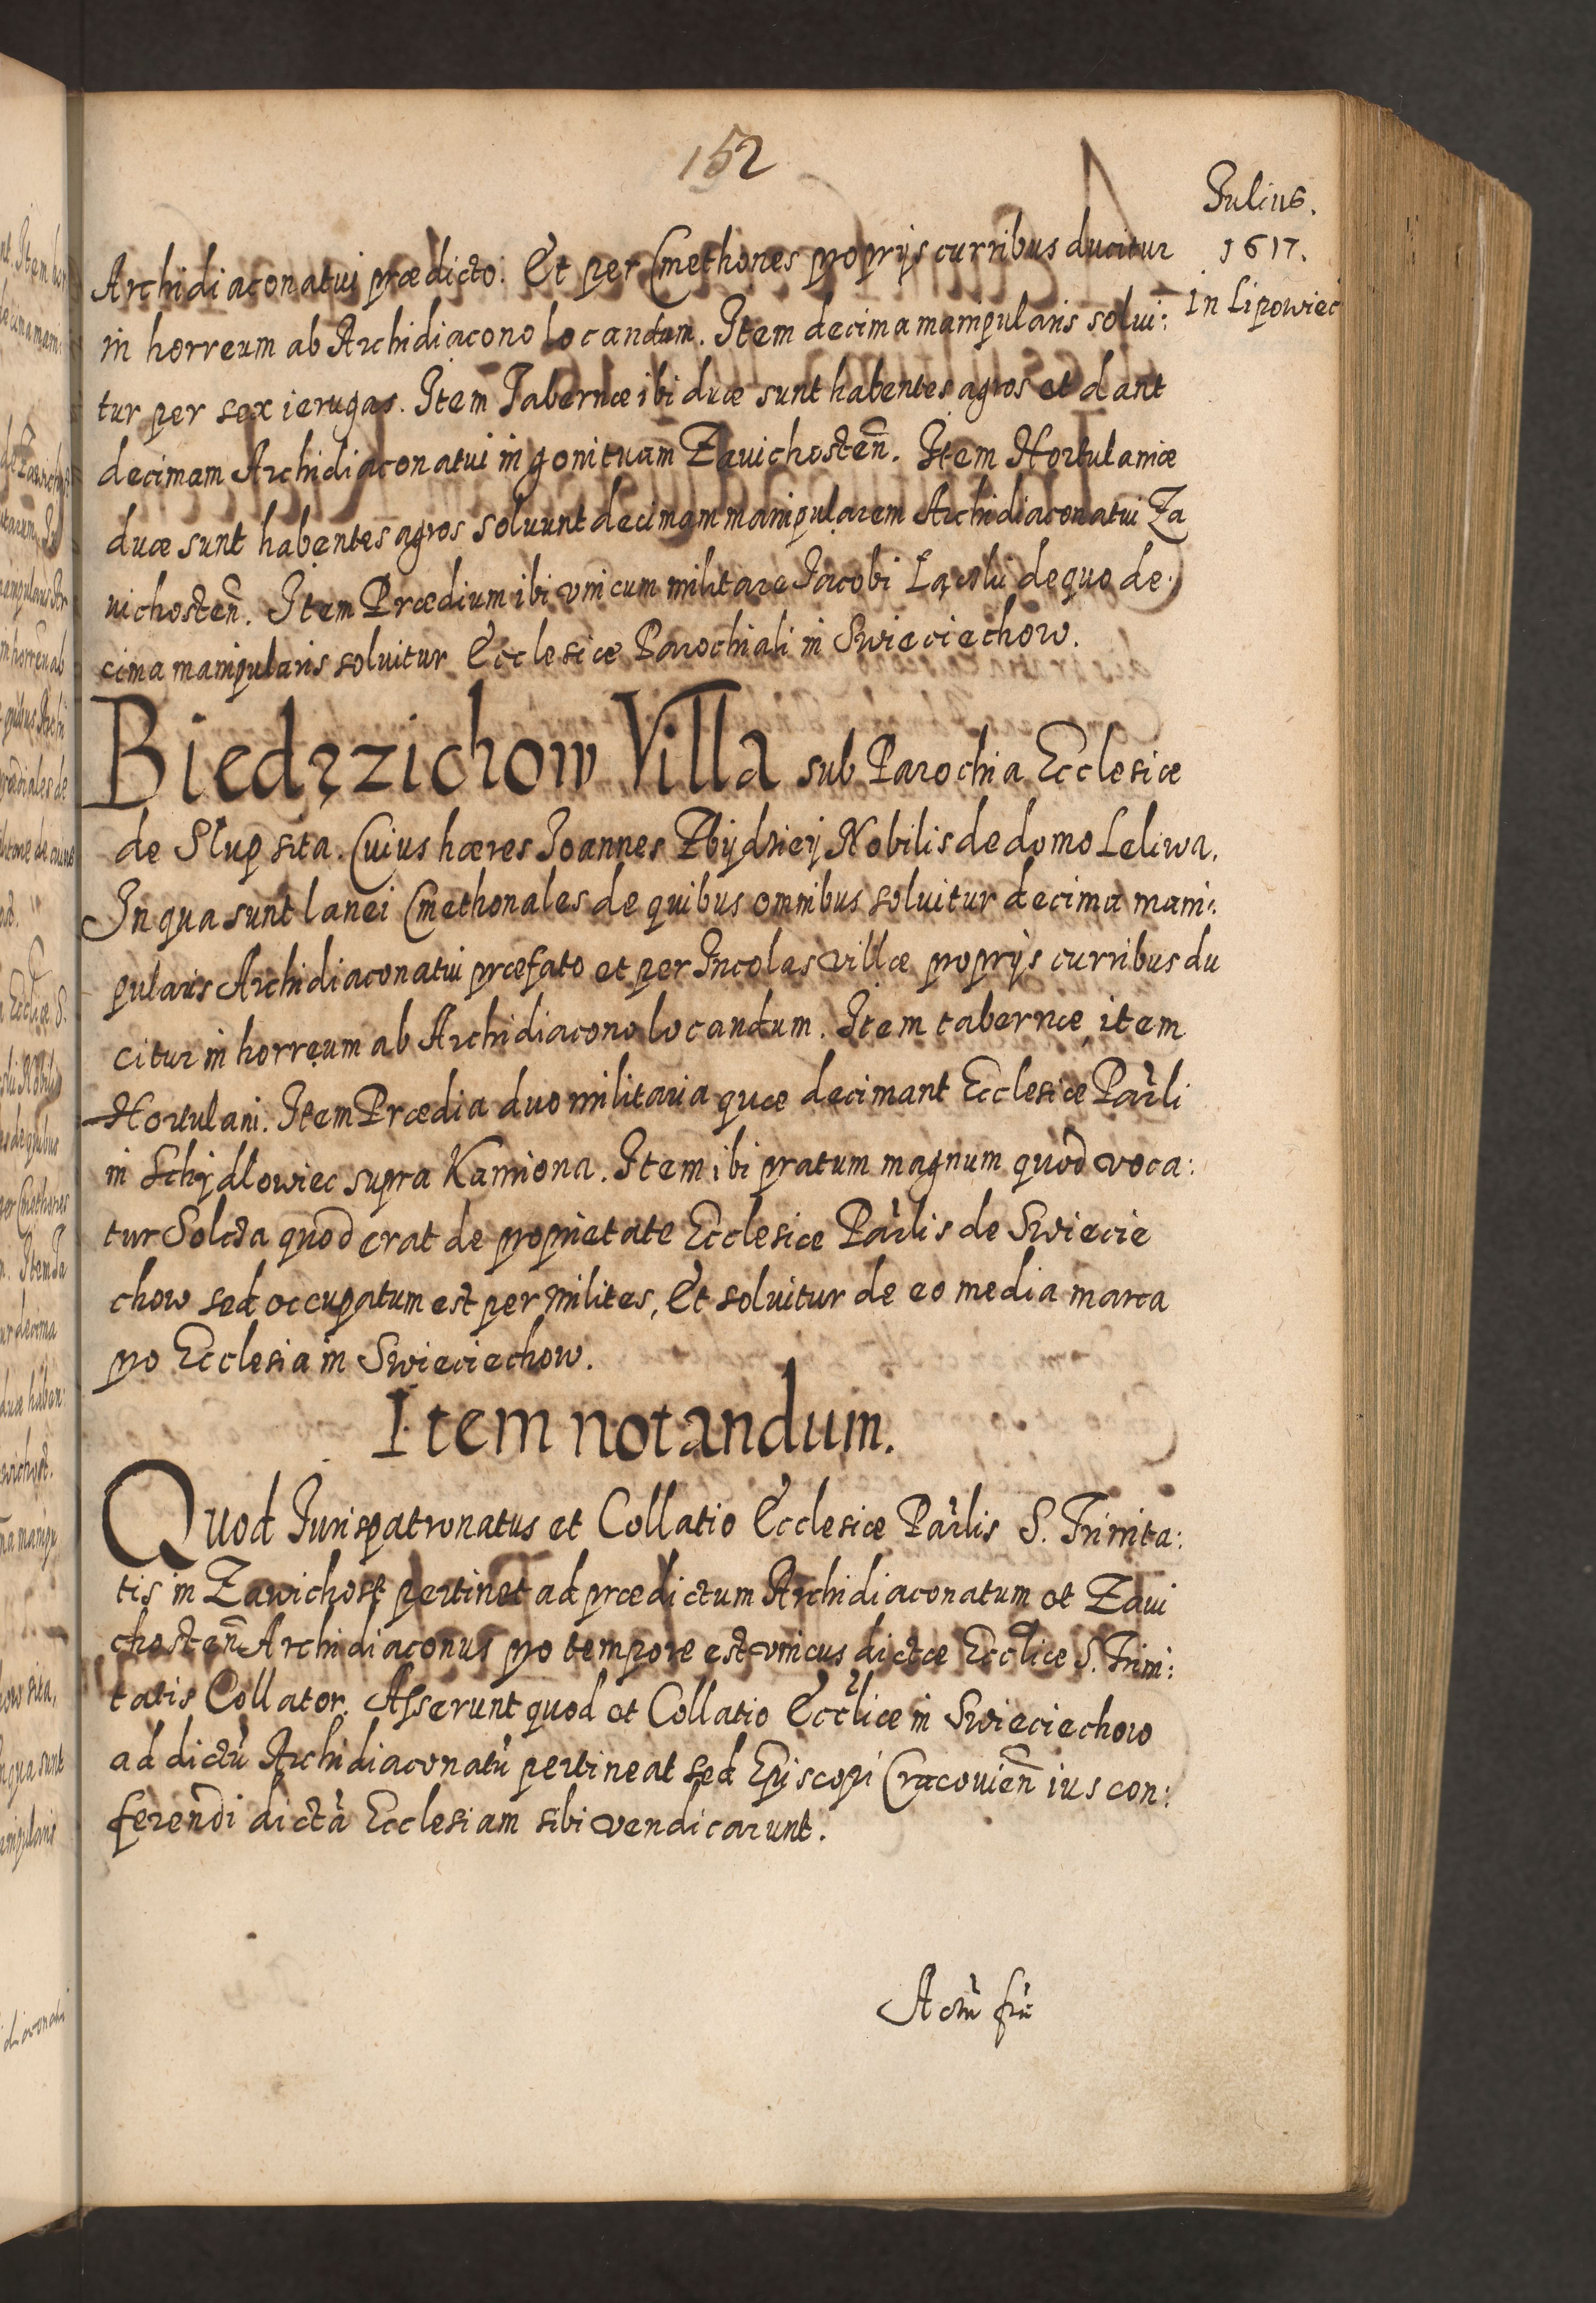 152
Julius.
1617.
In Lipowiec
Archidiaconatui prædicto. Et per Cmethones proprijs curribus ducitur
in horreum ab Archidiacono locandum. Item decima manipularis solui:
tur per sex ierugas. Item Tabernæ ibi duæ sunt habentes agros et dant
decimam Archidiaconatui in gonituam Zauichosten̄. Item Hortulaniæ
duæ sunt habentes agros soluunt decimam manipularem Archidiaconatui Za
uichosten̄. Item Prædium ibi vnicum militare Jacobi de quo de:
cima manipularis soluitur Ecclesiæ Parochiali in Swieciechow.
Biedrzichow Villa sub Parochia Ecclesiæ
de Slup sita. Cuius hæres Joannes Zbijdniej Nobilis de domo Leliwa.
In qua sunt lanei Cmethonales de quibus omnibus soluitur decima mani:
pularis Archidiaconatui præfato et per Incolas villæ proprijs curribus du
citur in horreum ab Archidiacono locandum. Item tabernæ, item
Hortulani. Item Prædia duo militaria quæ decimant Ecclesiæ Parl̀i
in Schÿdlowiec supra Kamiona. Item ibi pratum magnum quod voca:
tur Solcza quod erat de proprietate Ecclesiæ Parl̀is de Swiecie
chow sed occupatum est per milites, Et soluitur de eo media marca
pro Ecclesia in Swieciechow.
Item notandum.
Quod Jurispatronatus et Collatio Ecclesiæ Parl̀is S. Trinita:
tis in Zawichost pertinet ad prædictum Archidiaconatum et Zaui
chosten̄ Archidiaconus pro tempore est vnicus dictæ Eccliæ S. Trini:
tatis Collator. Asserunt quod et Collatio Eccl̀iæ in Swieciechow
ad dictù Archidiaconatù pertineat sed Episcopi Cracouien̄ ius con:
ferendi dictà Ecclesiam sibi vendicarunt.
Actù fù